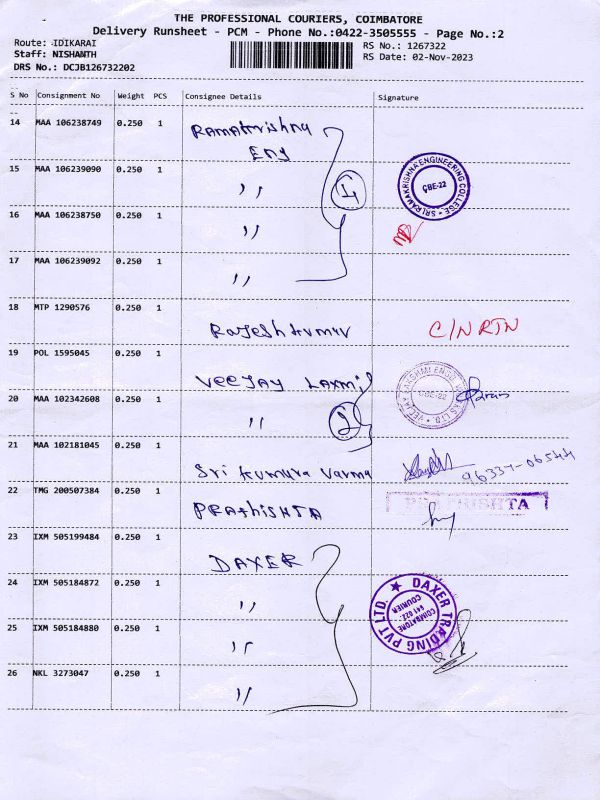 THE PROFESSIONAL COURIERS, COIMBATORE
Delivery Runsheet - PCM - Phone No.:0422-3505555 - Page No.:2
Route: IDIKARAI
RS No.: 1267322
Staff: NISHANTH
RS Date: 02-Nov-2023
DRS No.: DCJB126732202
S No Consignment No Weight PCS Consignee Details Signature
14 MAA 106238749 0.250 1 Ramakrishna
Eng
15 MAA 106239090 0.250 1 ,,
SRI RAMAKRISHNA ENGINEERING COLLEGE
CBE-22
4
16 MAA 106238750 0.250 1 ,,
17 MAA 106239092 0.250 1 ,,
18 MTP 1290576 0.250 1 Rajesh kumar C/N RTN
19 POL 1595045 0.250 1 VEEJAY LAXMi
CBE-22
20 MAA 102342608 0.250 1 ,,
2
21 MAA 102181045 0.250 1 Sri kumura varma 96337-06544
22 TMG 200507384 0.250 1 PRAthiSHTA
23 IXM 505199484 0.250 1 DAXER
24 IXM 505184872 0.250 1 ,,
DAXER TRADING PVT LTD.
COIMBATORE
641 022.
COURIER
25 IXM 505184880 0.250 1 ,,
26 NKL 3273047 0.250 1 ,,